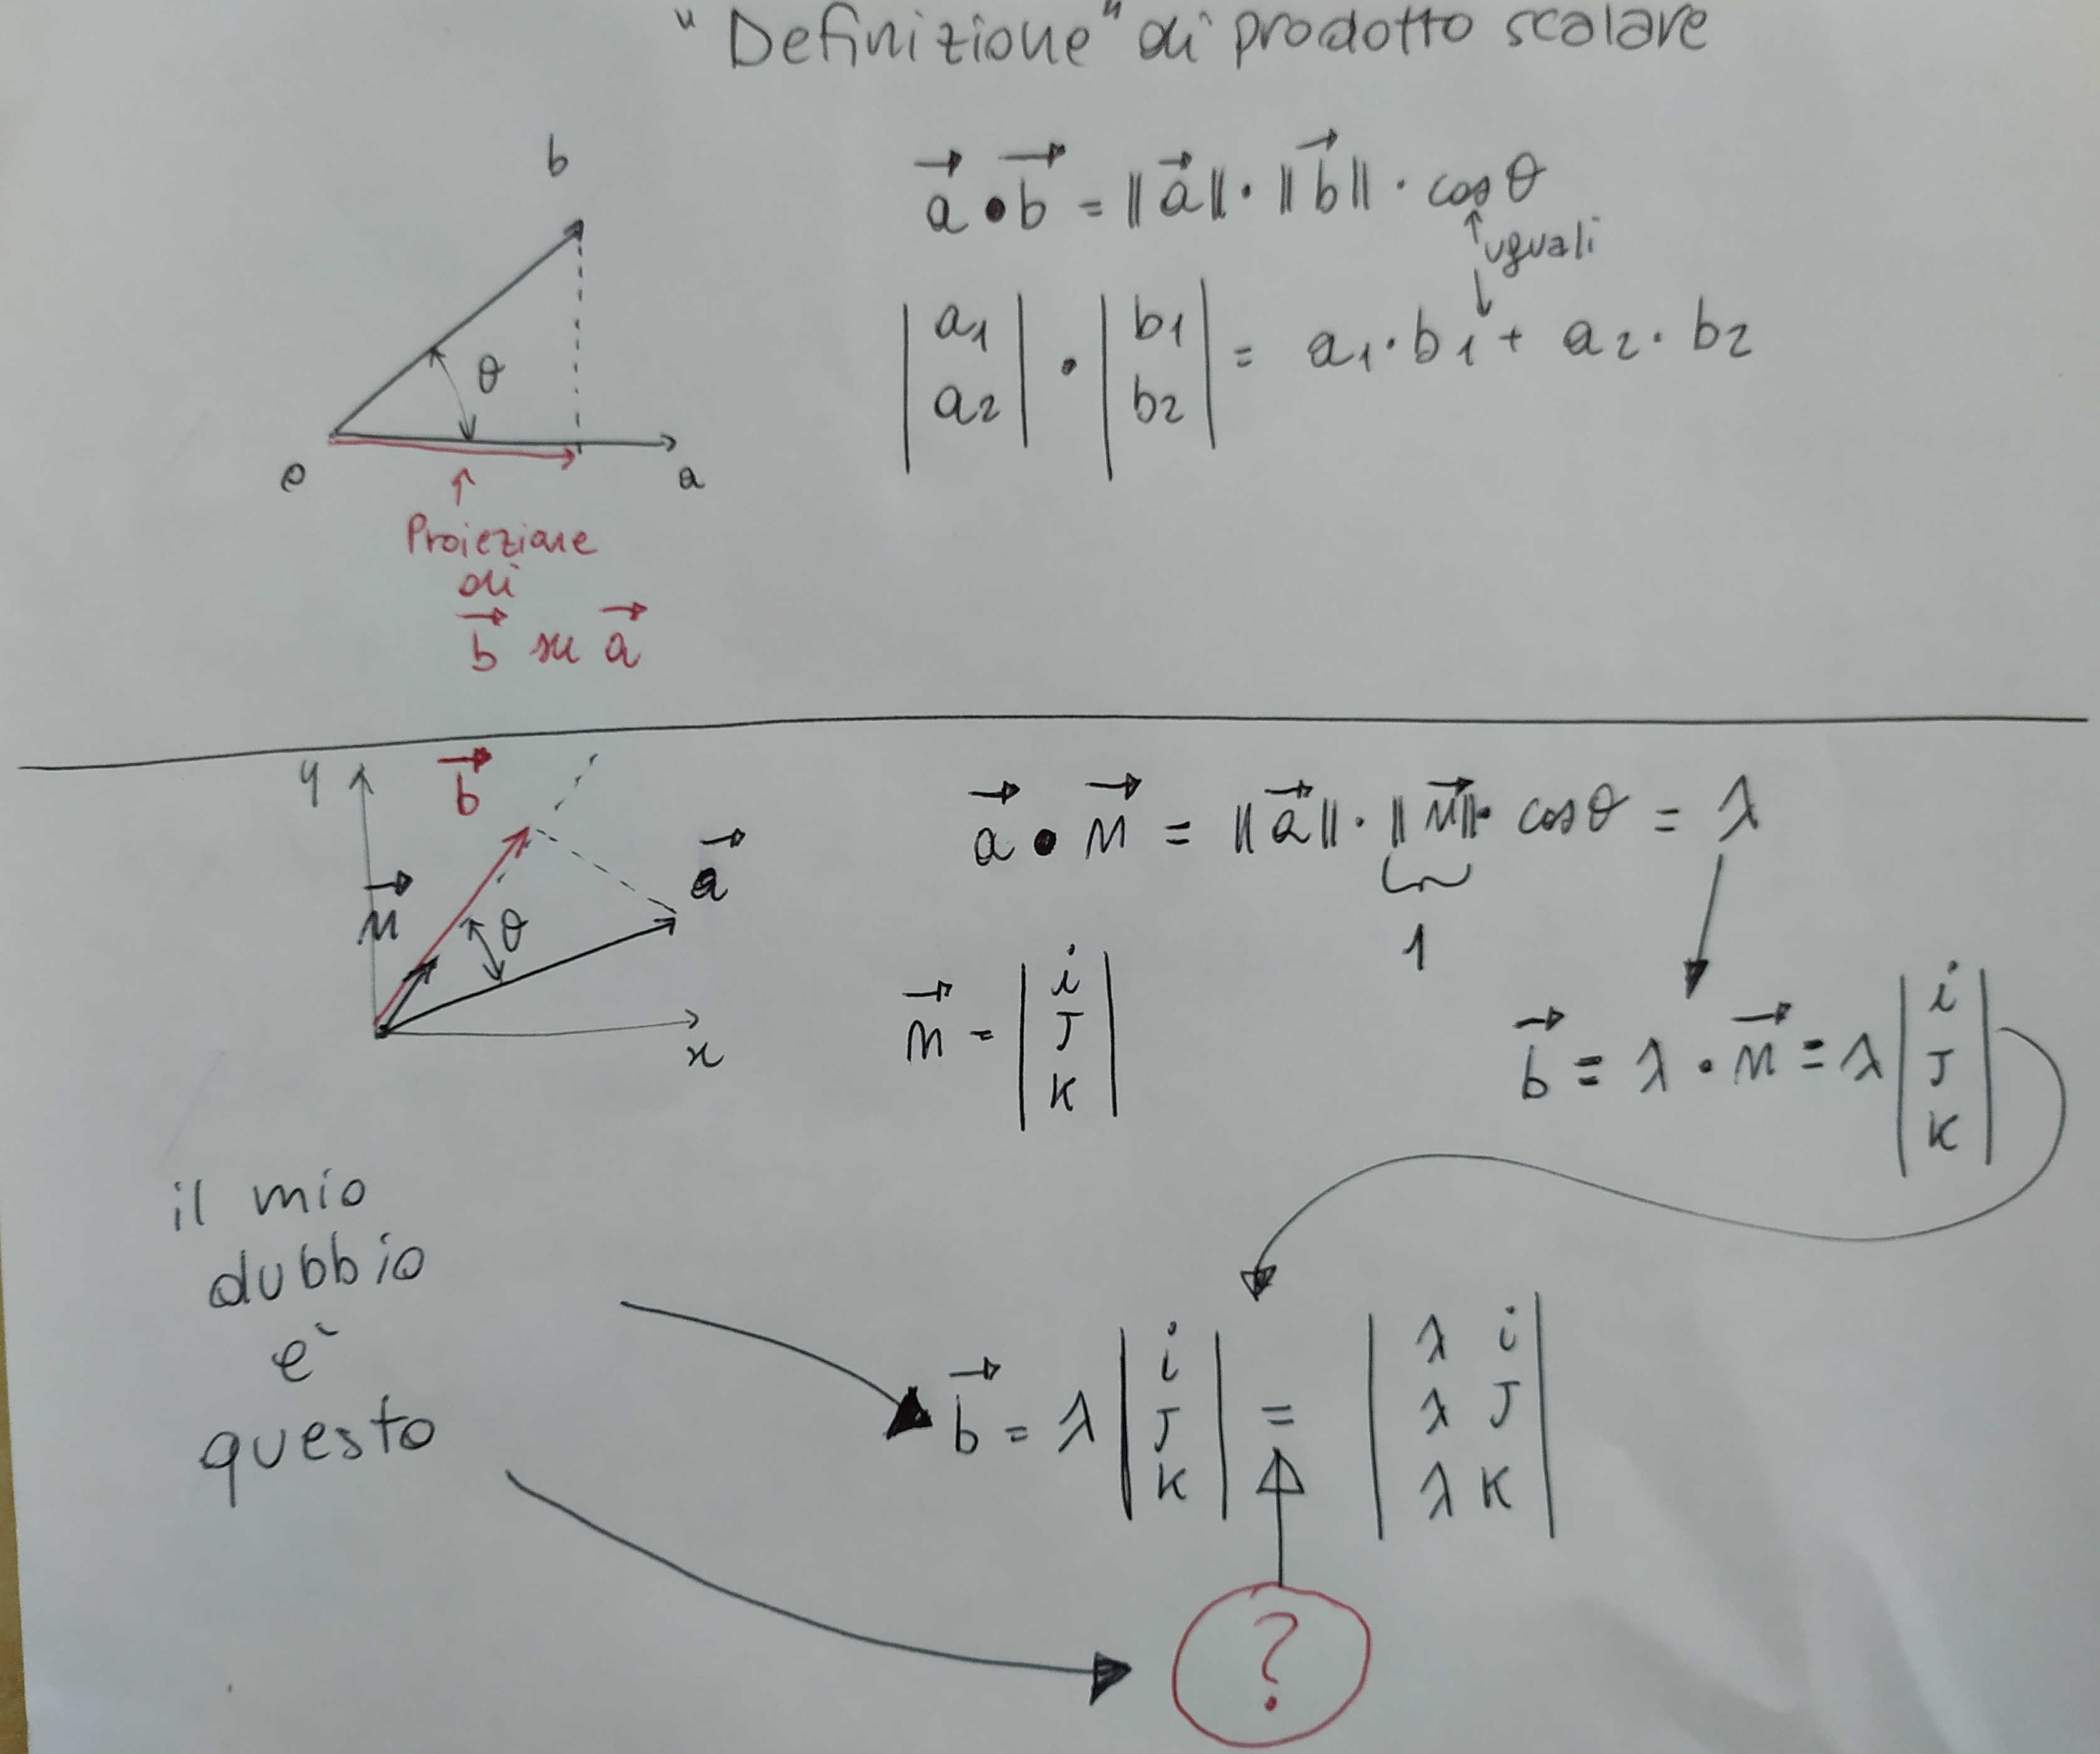 "Definizione" di prodotto scalare
b
θ
o
a
Proiezione
di
b⃗ su a⃗
a⃗ • b⃗ = ‖a⃗‖ · ‖b⃗‖ · cos θ
uguali
|a1| · |b1| = a1 · b1 + a2 · b2
|a2| |b2|
y
b⃗
a⃗
θ
x
a⃗ • = ‖a⃗‖ · cos θ = λ
1
|i|
|J|
|K|
b⃗ = λ · = λ |i|
|J|
|K|
il mio
dubbio
è
questo
b⃗ = λ |i| = |λ i|
|J| |λ J|
|K| |λ K|
?